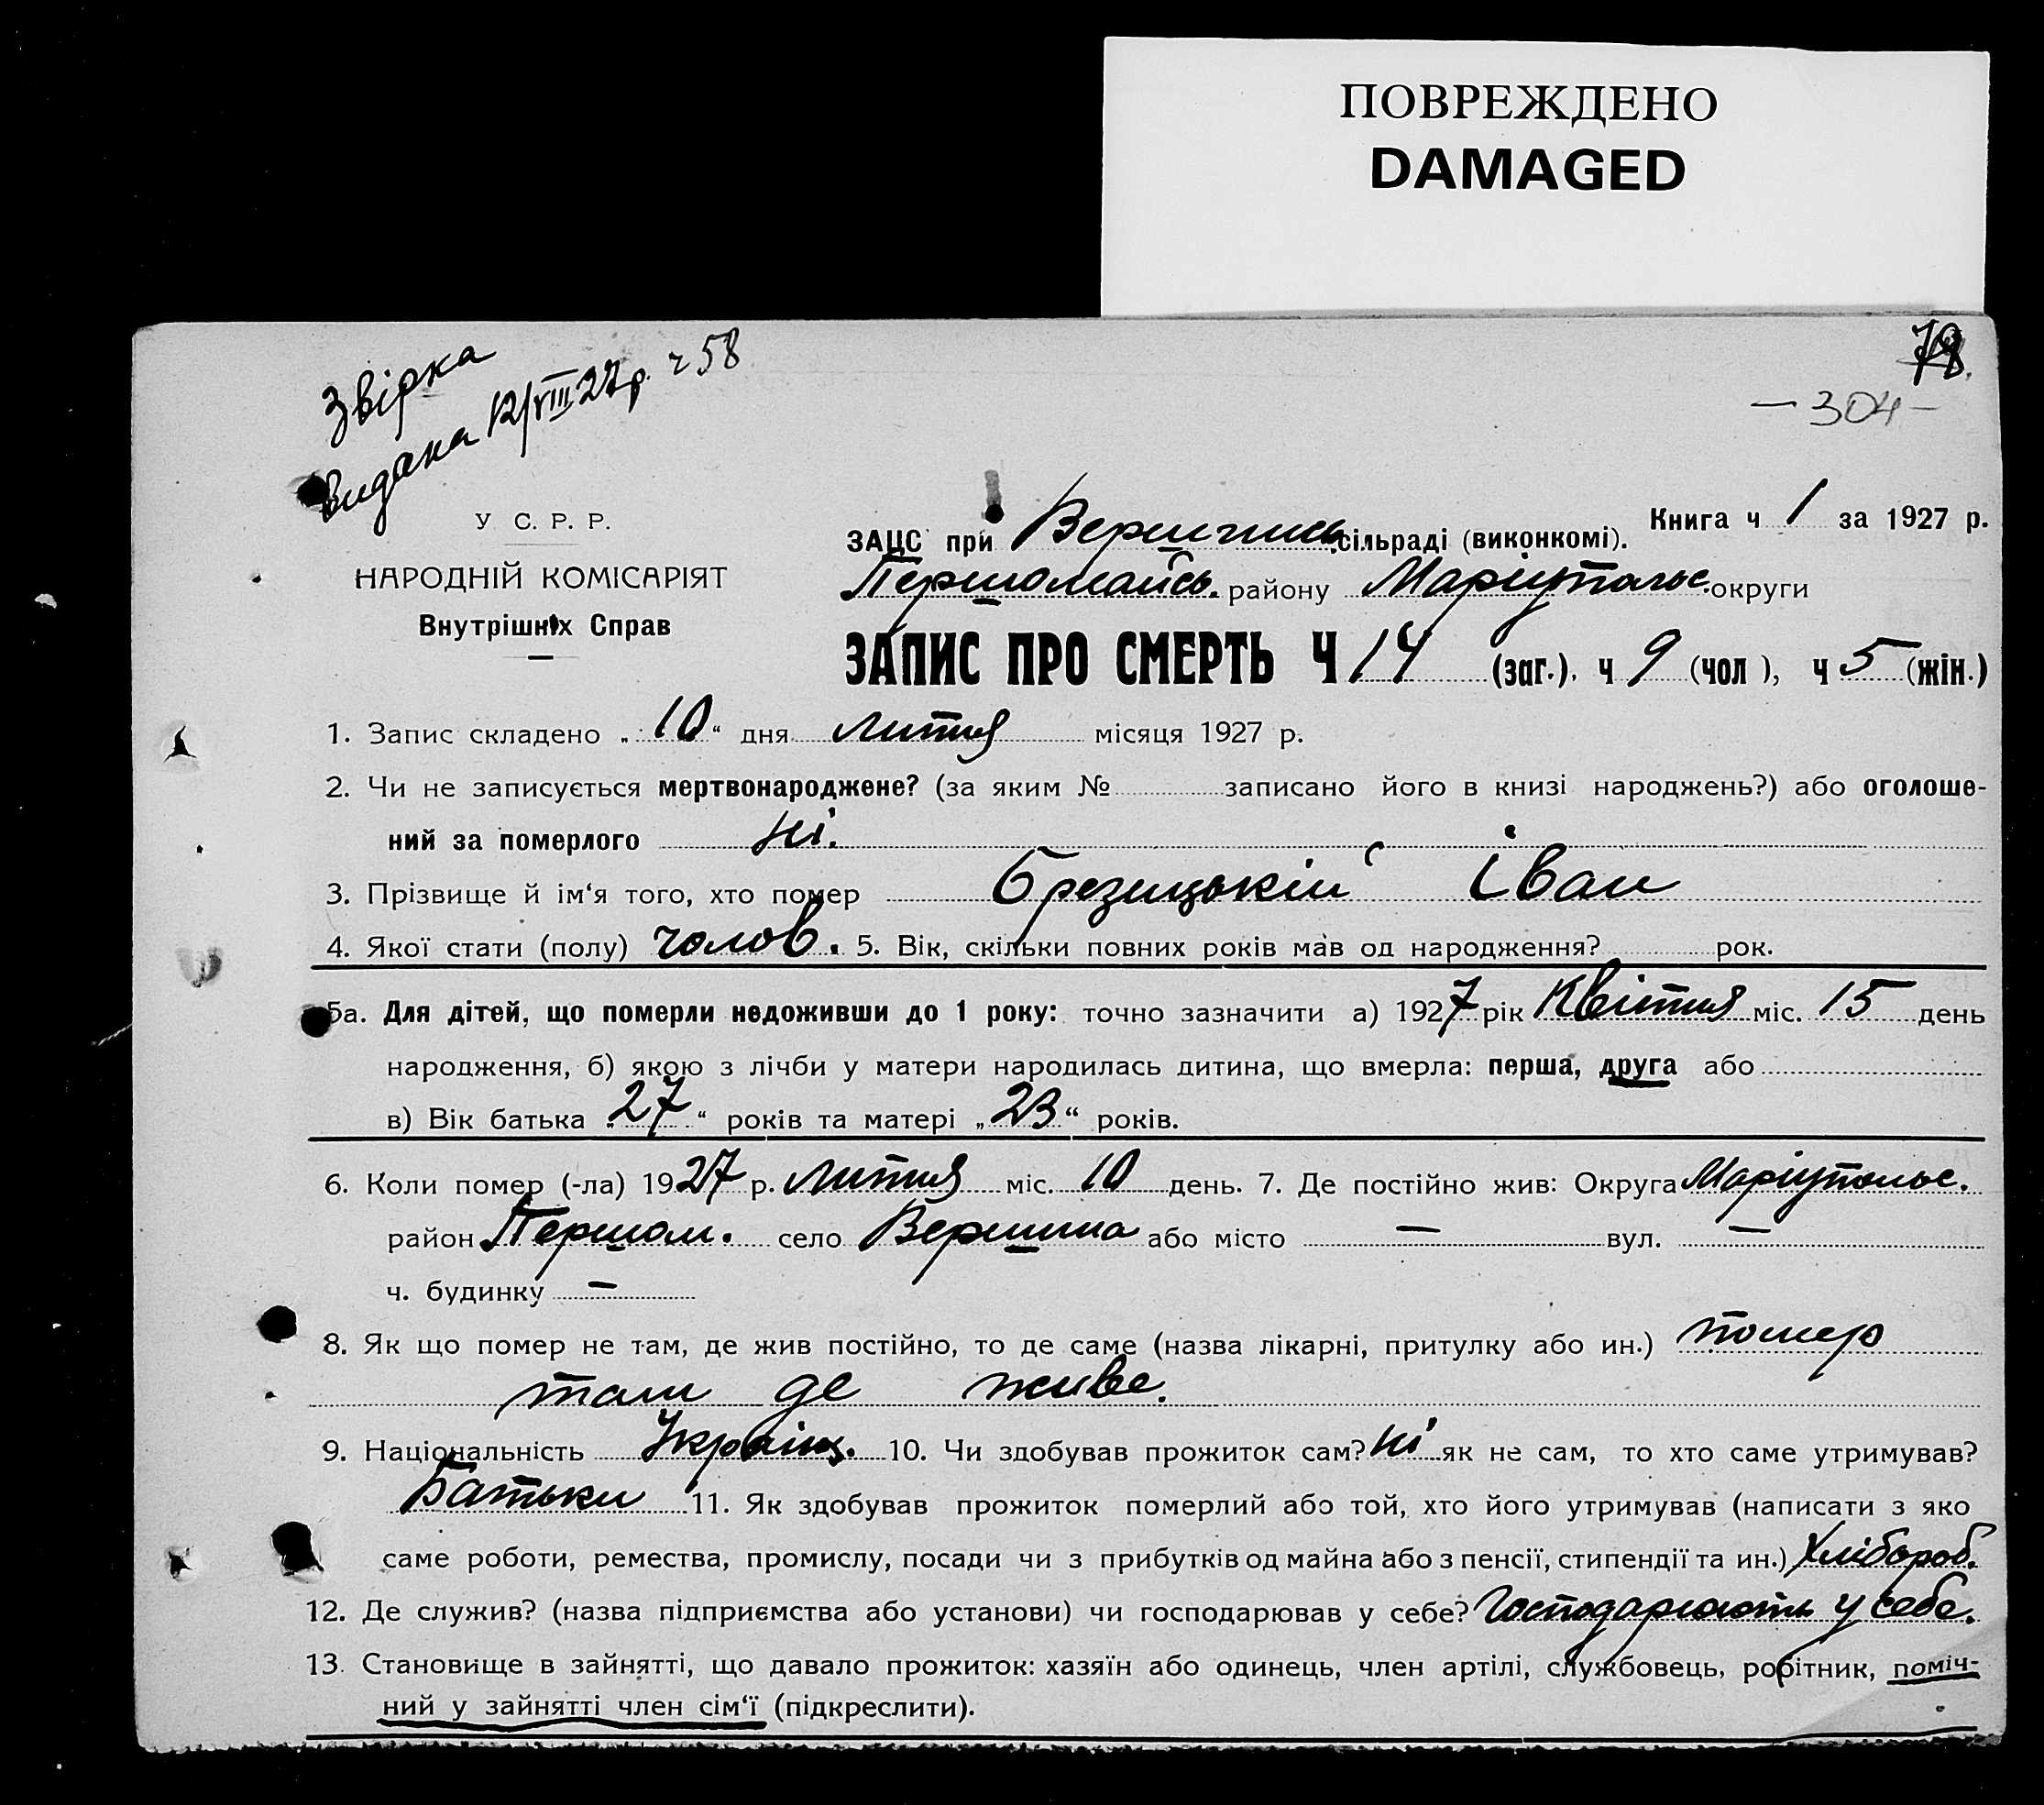 ПОВРЕЖДЕНО
DAMAGED
78
— 304 —
Звірка
видана 12/VIII 27р. ч 58
У С. Р. Р.
НАРОДНІЙ КОМІСАРІЯТ
Внутрішніх Справ
Книга ч 1 за 1927 р.
ЗАЦС при Вершинись сільраді (виконкомі).
Першомайсь. району Маріупольс. округи
ЗАПИС ПРО СМЕРТЬ Ч 14 (заг.). ч 9 (чол ), ч 5 (жін.)
1. Запис складено „ 10 “ дня лютня місяця 1927 р.
2. Чи не записується мертвонароджене? (за яким № записано його в книзі народжень?) або оголоше-
ний за померлого ні.
3. Прізвище й ім‘я того, хто помер Брезицькій Іван
4. Якої стати (полу) чолов. 5. Вік, скільки повних років мав од народження? рок.
5а. Для дітей, що померли недоживши до 1 року: точно зазначити а) 1927 рік Квітня міс. 15 день
народження, б) якою з лічби у матери народилась дитина, що вмерла: перша, друга або
в) Вік батька „ 27 “ років та матері „ 23 “ років.
6. Коли помер (-ла) 1927 р. лютня міс. 10 день. 7. Де постійно жив: Округа Маріупольс.
район Першом. село Вершина або місто — вул. —
ч. будинку —
8. Як що помер не там, де жив постійно, то де саме (назва лікарні, притулку або ин.) помер
там де живе.
9. Національність Україн. 10. Чи здобував прожиток сам? ні як не сам, то хто саме утримував?
Батьки 11. Як здобував прожиток померлий або той, хто його утримував (написати з яко
саме роботи, ремества, промислу, посади чи з прибутків од майна або з пенсії, стипендії та ин.) Хлібороб.
12. Де служив? (назва підприємства або установи) чи господарював у себе? Господарюють у себе.
13. Становище в зайнятті, що давало прожиток: хазяїн або одинець, член артілі, службовець, робітник, поміч-
ний у зайнятті член сім‘ї (підкреслити).